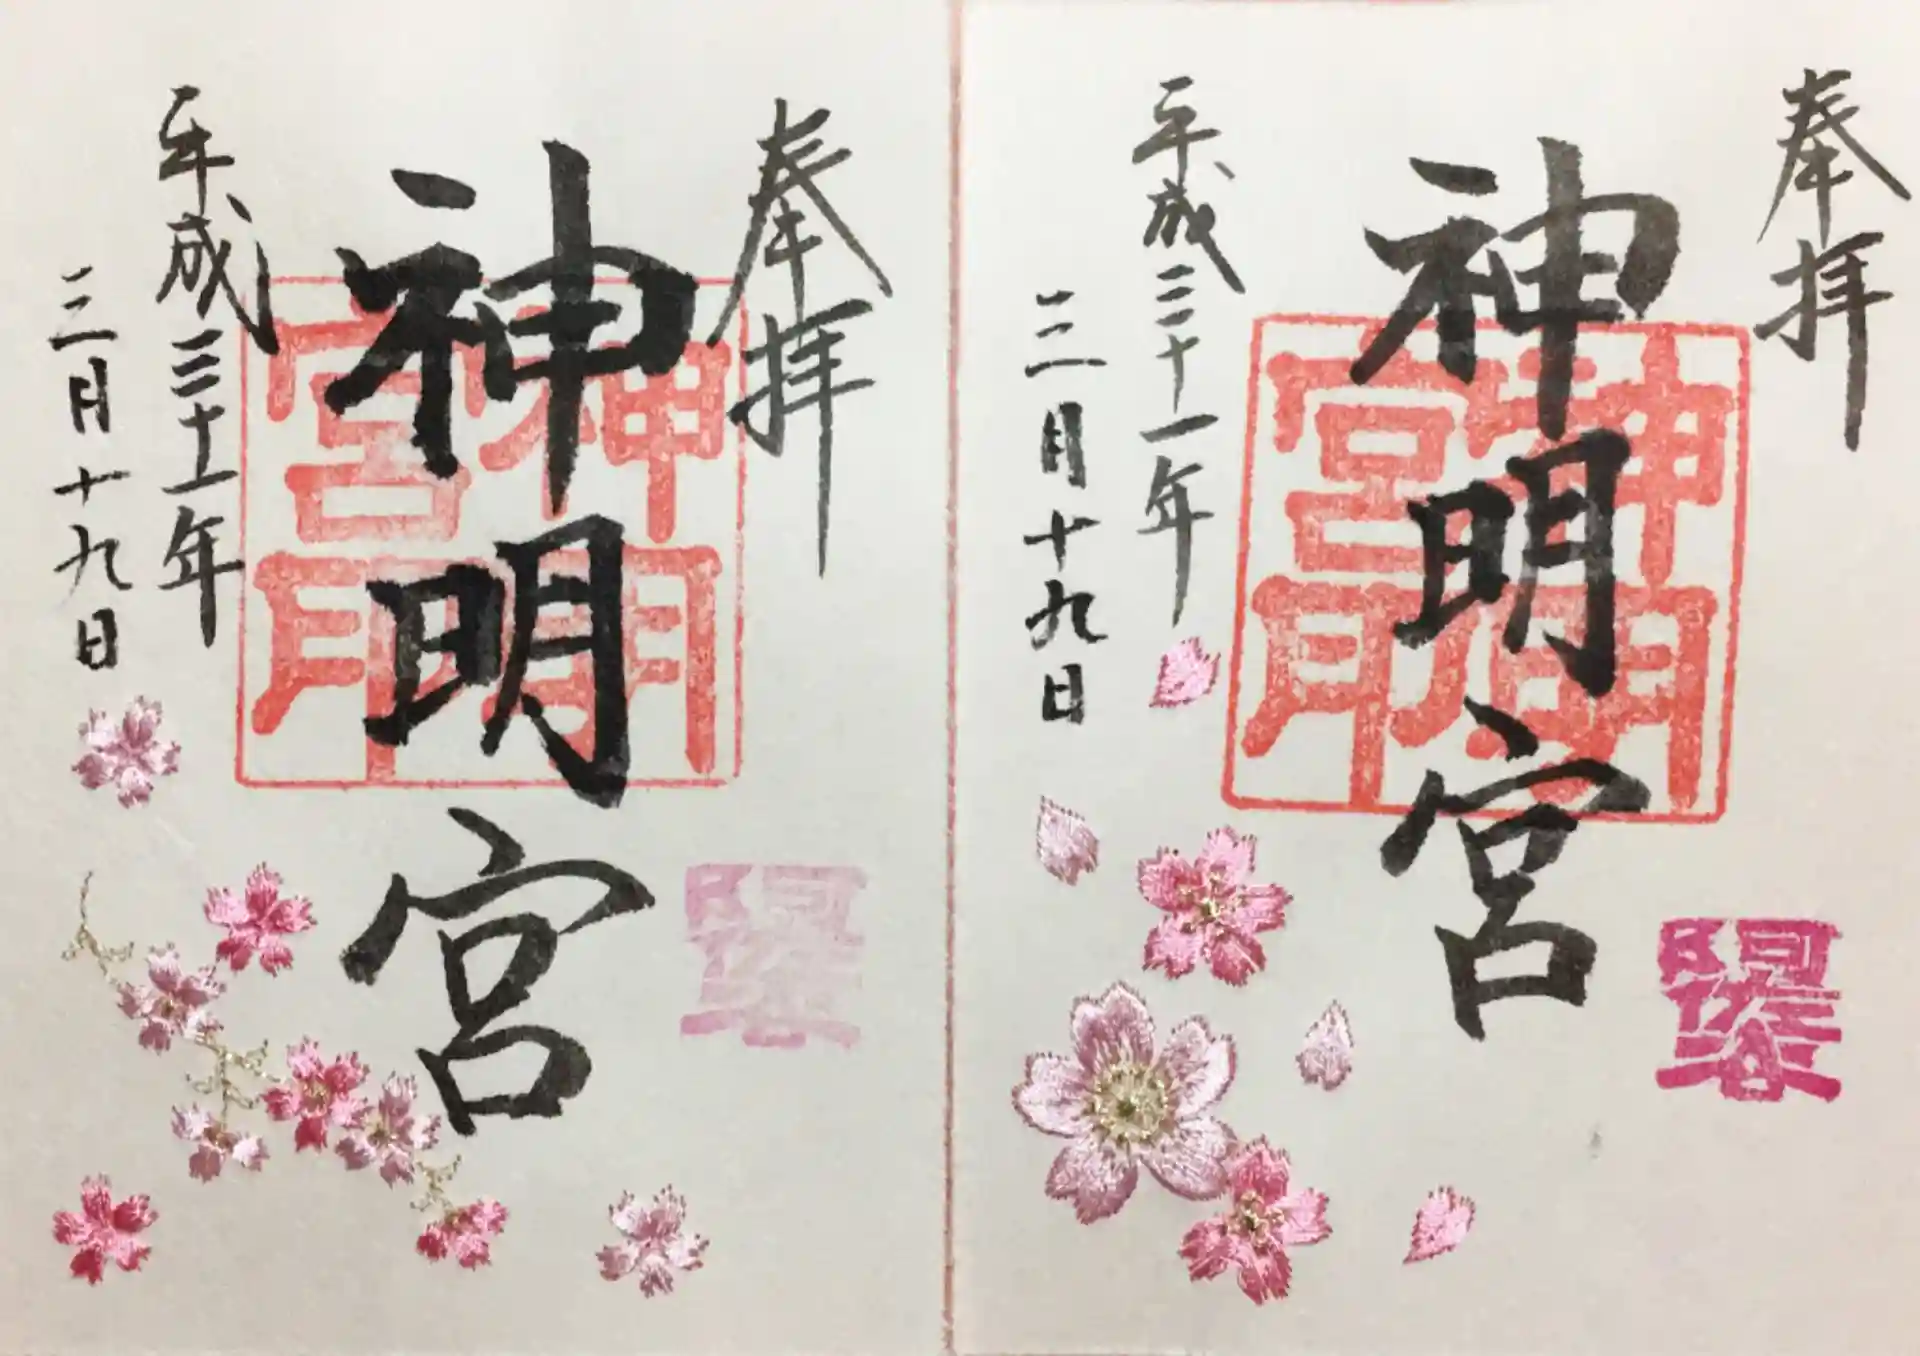 奉拝
阿佐谷
神明宮
神明
宮印
平成三十一年
三月十九日
奉拝
阿佐谷
神明宮
神明
宮印
平成三十一年
三月十九日